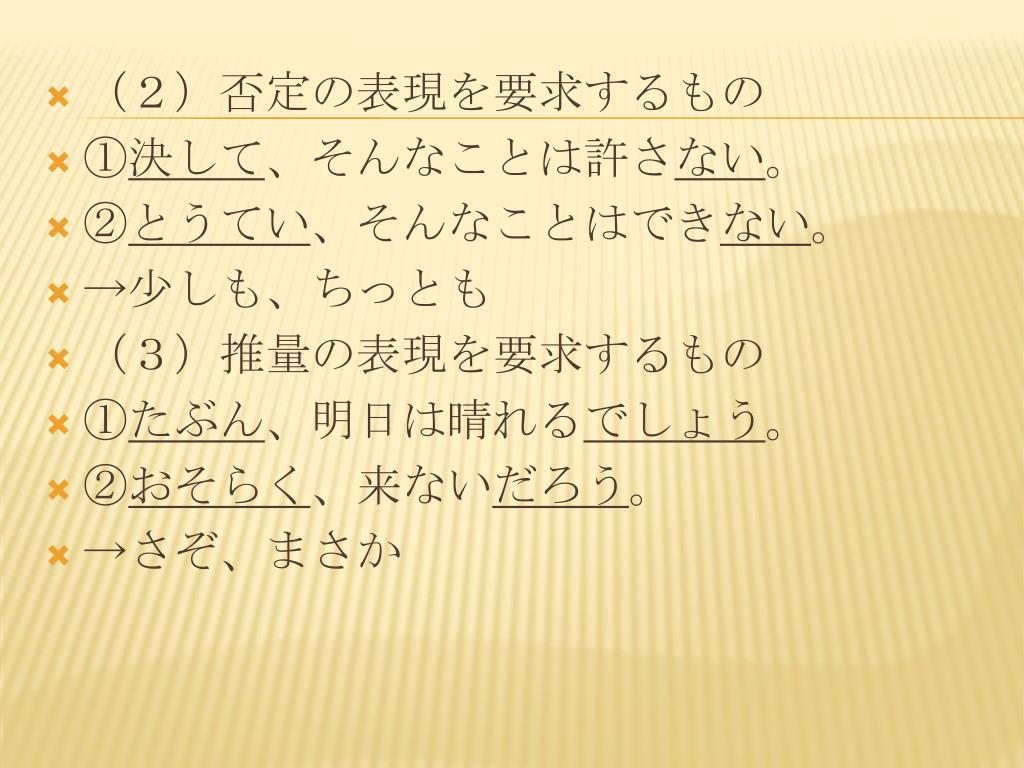 （２）否定の表現を要求するもの
①決して、そんなことは許さない。
②とうてい、そんなことはできない。
→少しも、ちっとも
（３）推量の表現を要求するもの
①たぶん、明日は晴れるでしょう。
②おそらく、来ないだろう。
→さぞ、まさか